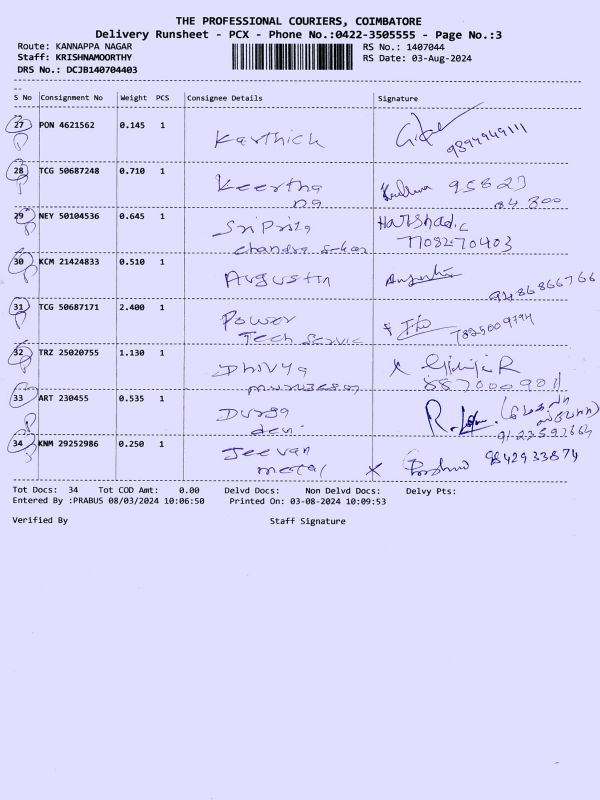 THE PROFESSIONAL COURIERS, COIMBATORE
Delivery Runsheet - PCX - Phone No.:0422-3505555 - Page No.:3
Route: KANNAPPA NAGAR RS No.: 1407044
Staff: KRISHNAMOORTHY RS Date: 03-Aug-2024
DRS No.: DCJB140704403
S No Consignment No Weight PCS Consignee Details Signature
27 PON 4621562 0.145 1 Karthick
9894949111
28 TCG 50687248 0.710 1 Keertha 95627
na 04 800
29 NEY 50104536 0.645 1 Sri Priya Harshad.c
Chandra Sekar 7708270403
30 KCM 21424833 0.510 1 Augustin 9486866766
31 TCG 50687171 2.400 1 Power 7825009794
Tech Service
32 TRZ 25020755 1.130 1 Dhivya X
murugesan 8870009011
33 ART 230455 0.535 1 Durga
devi
34 KNM 29252986 0.250 1 Jeevan 9842933874
metal X
Tot Docs: 34 Tot COD Amt: 0.00 Delvd Docs: Non Delvd Docs: Delvy Pts:
Entered By :PRABUS 08/03/2024 10:06:50 Printed On: 03-08-2024 10:09:53
Verified By Staff Signature